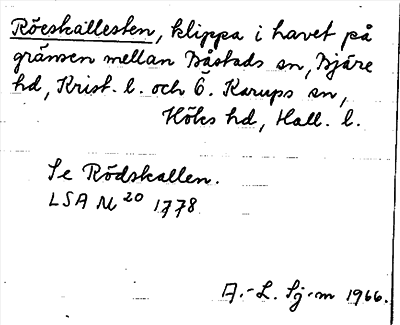 Röeskallesten, klippa i havet på
gränsen mellan Båstads sn, Bjäre
hd, Krist. l. och Ö. Karups sn,
Höks hd, Hall. l.
Se Rödskallen.
LSA № 20 1778
A.-L. Sj-m 1966.